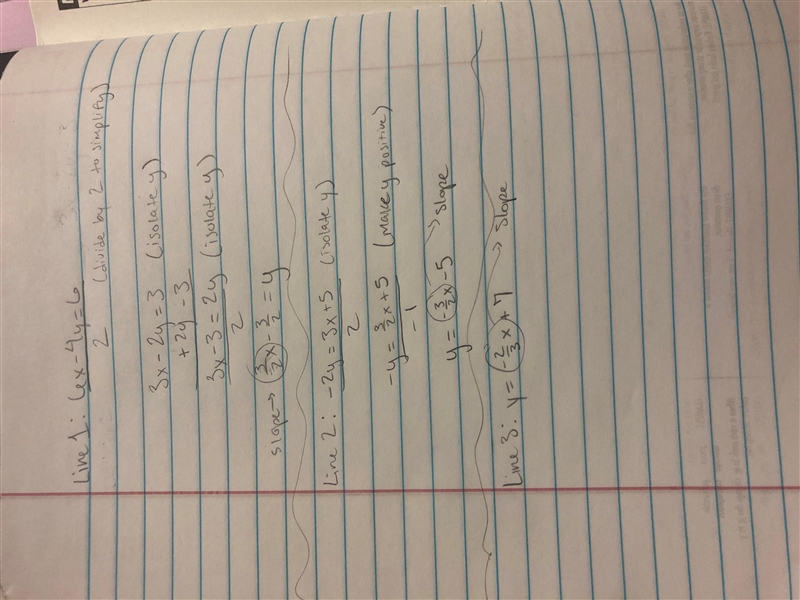 Line 1: 6x - 4y = 6
2 (divide by 2 to simplify)
3x - 2y = 3 (isolate y)
+ 2y - 3
3x - 3 = 2y (isolate y)
2
slope → 3/2x - 3/2 = y
Line 2: -2y = 3x + 5 (isolate y)
2
-y = 3/2x + 5 (make y positive)
-1
y = -3/2x - 5 → slope
Line 3: y = -2/3x + 7 → slope